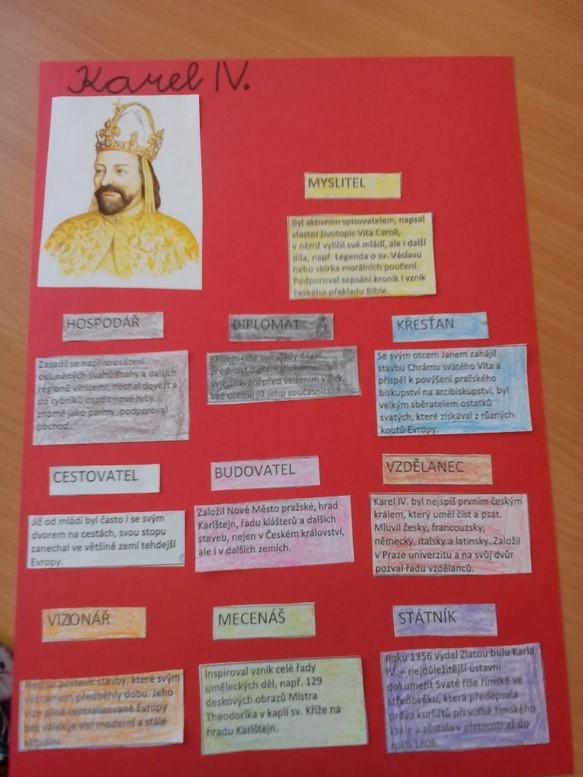 Karel IV.
MYSLITEL
Byl aktivním spisovatelem, napsal
vlastní životopis Vita Caroli,
v němž vylíčil své mládí, ale i další
díla, např. Legenda o sv. Václavu
nebo sbírka morálních poučení.
Podporoval sepsání kronik i vznik
českého překladu Bible.
HOSPODÁŘ
Zasadil se např. o osázení
osluněných svahů Prahy a dalších
regionů vinicemi, nechal dovézt a
do rybníků osadit nové ryby
známé jako parmy, podporoval
obchod.
DIPLOMAT
Během celé své vlády dával
přednost diplomatickému
vyjednávání před vedením válek
což ocenili již jeho současníci.
KŘESŤAN
Se svým otcem Janem zahájil
stavbu Chrámu svatého Víta a
přispěl k povýšení pražského
biskupství na arcibiskupství, byl
velkým sběratelem ostatků
svatých, které získával z různých
koutů Evropy.
CESTOVATEL
Již od mládí byl často i se svým
dvorem na cestách, svou stopu
zanechal ve většině zemí tehdejší
Evropy.
BUDOVATEL
Založil Nové Město pražské, hrad
Karlštejn, řadu klášterů a dalších
staveb, nejen v Českém království,
ale i v dalších zemích.
VZDĚLANEC
Karel IV. byl nejspíš prvním českým
králem, který uměl číst a psát.
Mluvil česky, francouzsky,
německy, italsky a latinsky. Založil
v Praze univerzitu a na svůj dvůr
pozval řadu vzdělanců.
VIZIONÁŘ
Nechal postavit stavby, které svým
významem předběhly dobu. Jeho
vize silné centralizované Evropy
bez válek je vizí moderní a stále
aktuální.
MECENÁŠ
Inspiroval vznik celé řady
uměleckých děl, např. 129
deskových obrazů Mistra
Theodorika v kapli sv. Kříže na
hradu Karlštejn.
STÁTNÍK
Roku 1356 vydal Zlatou bulu Karla
IV. – nejdůležitější ústavní
dokument Svaté říše římské ve
středověku, která předepsala
práva kurfiřtů při volbě římského
krále a zůstala v platnosti až do
roku 1806.